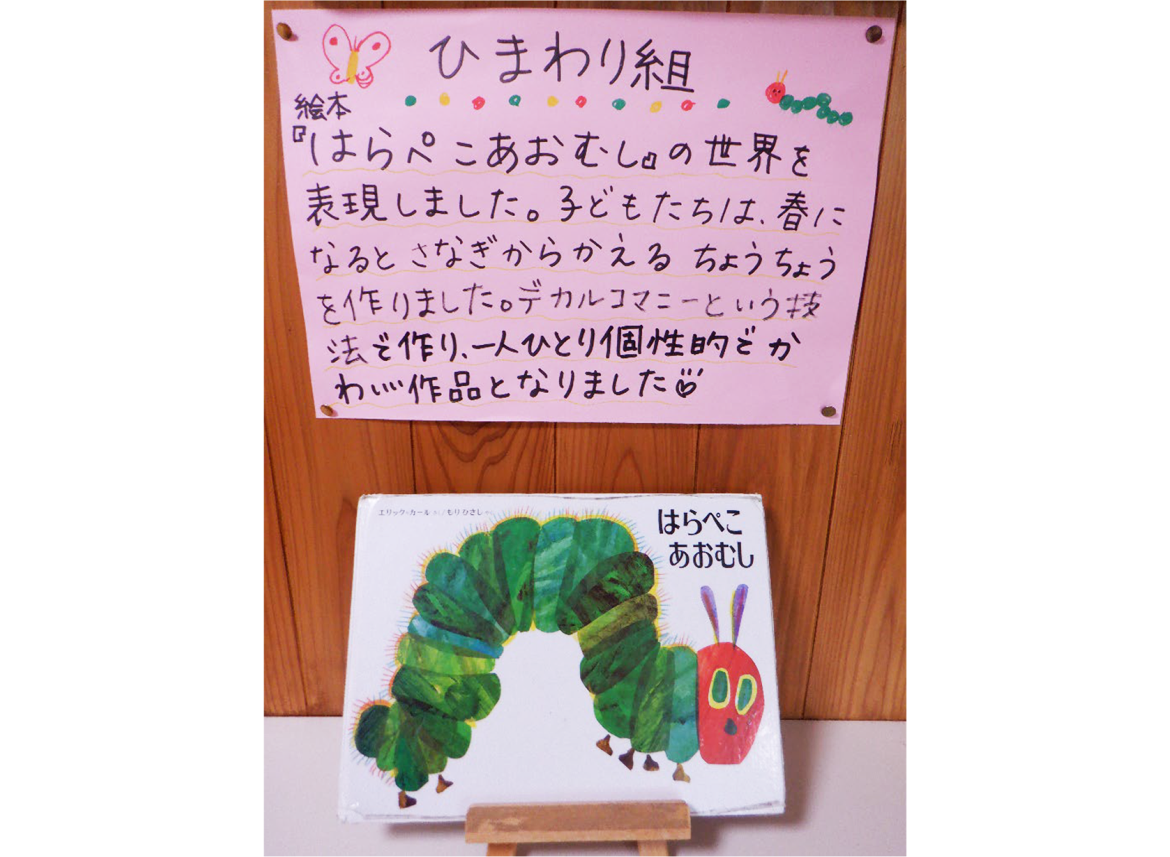 ひまわり組
絵本
『はらぺこあおむし』の世界を
表現しました。子どもたちは、春に
なるとさなぎからかえるちょうちょう
を作りました。デカルコマニーという技
法で作り、一人ひとり個性的でか
わいい作品となりました
エリック・カール さく／もりひさし やく
はらぺこ
あおむし